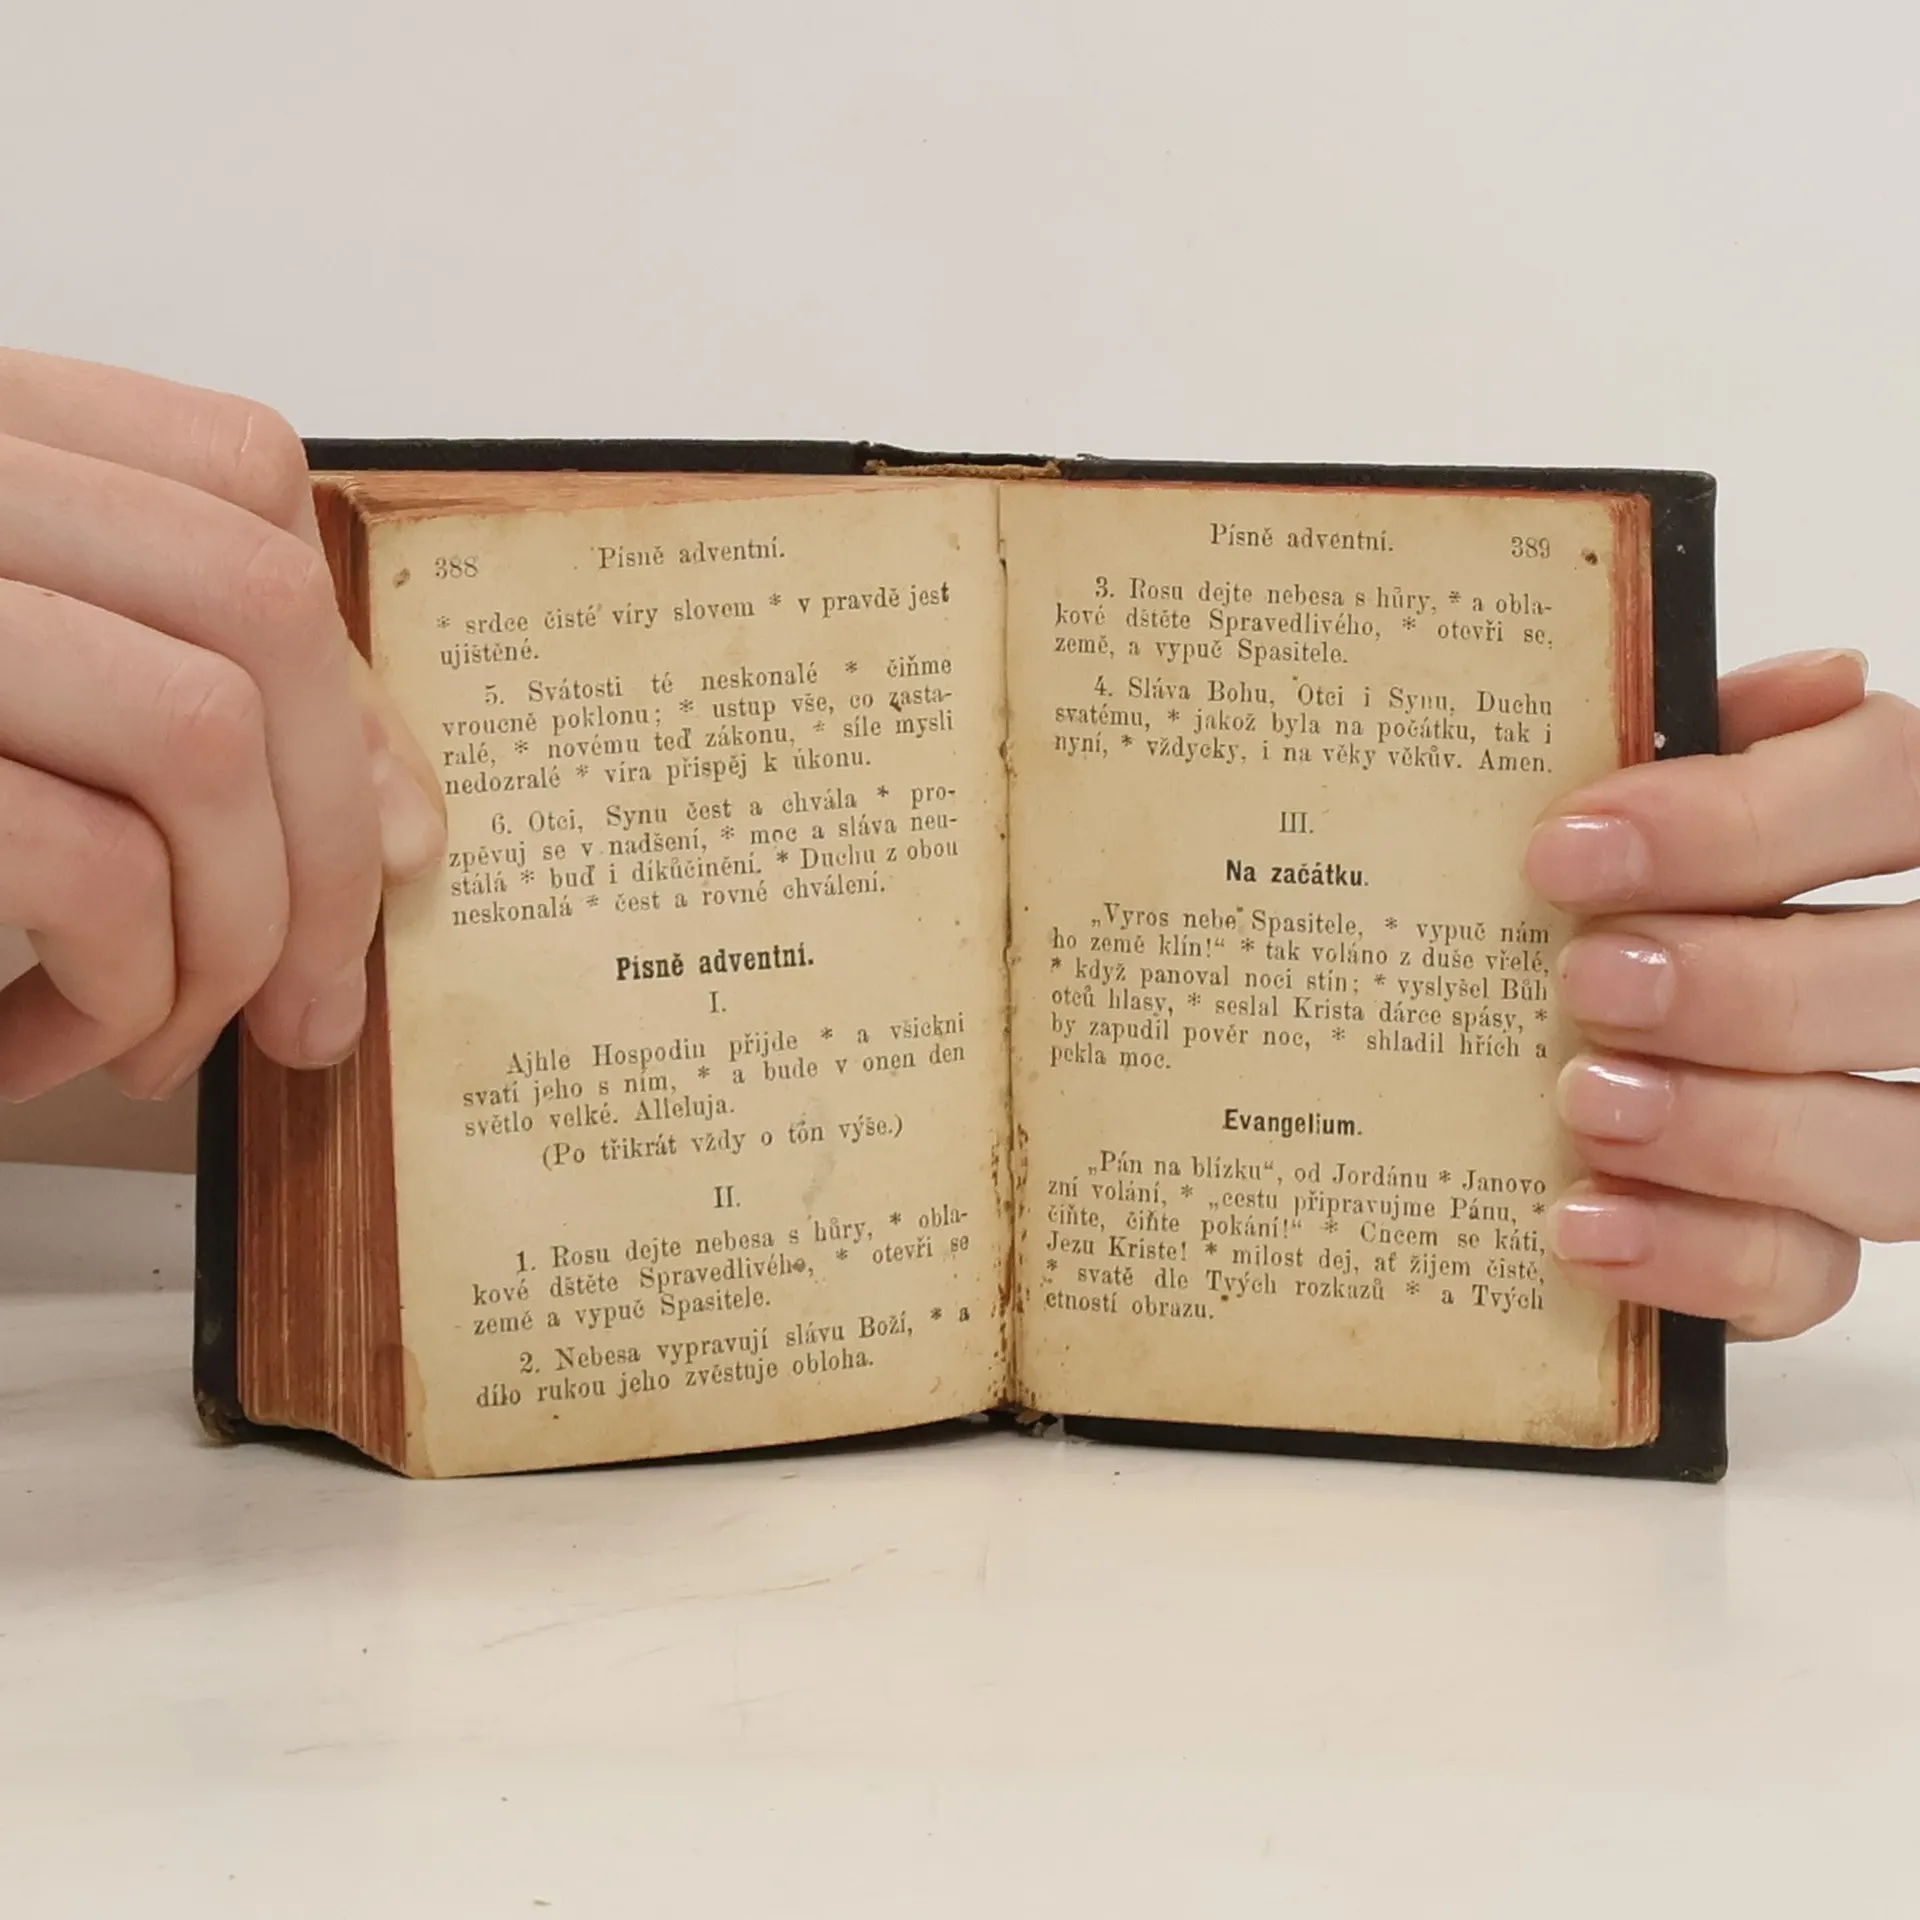 388 Písně adventní.
* srdce čisté víry slovem * v pravdě jest
ujištěné.
5. Svátosti té neskonalé * čiňme
vroucně poklonu; * ustup vše, co zasta-
ralé, * novému teď zákonu, * síle mysli
nedozralé * víra přispěj k úkonu.
6. Otci, Synu čest a chvála * pro-
zpěvuj se v nadšení, * moc a sláva neu-
stálá * buď i díkůčinění. * Duchu z obou
neskonalá * čest a rovné chválení.
Písně adventní.
I.
Ajhle Hospodin přijde * a všickni
svatí jeho s ním, * a bude v onen den
světlo velké. Alleluja.
(Po třikrát vždy o tón výše.)
II.
1. Rosu dejte nebesa s hůry, * obla-
kové dštěte Spravedlivého, * otevři se
země a vypuč Spasitele.
2. Nebesa vypravují slávu Boží, * a
dílo rukou jeho zvěstuje obloha.
Písně adventní. 389
3. Rosu dejte nebesa s hůry, * a obla-
kové dštěte Spravedlivého, * otevři se,
země, a vypuč Spasitele.
4. Sláva Bohu, Otci i Synu, Duchu
svatému, * jakož byla na počátku, tak i
nyní, * vždycky, i na věky věkův. Amen.
III.
Na začátku.
„Vyros nebe Spasitele, * vypuč nám
ho země klín!“ * tak voláno z duše vřelé,
* když panoval noci stín; * vyslyšel Bůh
otců hlasy, * seslal Krista dárce spásy, *
by zapudil pověr noc, * shladil hřích a
pekla moc.
Evangelium.
„Pán na blízku“, od Jordánu * Janovo
zní volání, * „cestu připravujme Pánu, *
čiňte, čiňte pokání!“ * Chcem se káti,
Jezu Kriste! * milost dej, ať žijem čistě,
* svatě dle Tvých rozkazů * a Tvých
ctností obrazu.